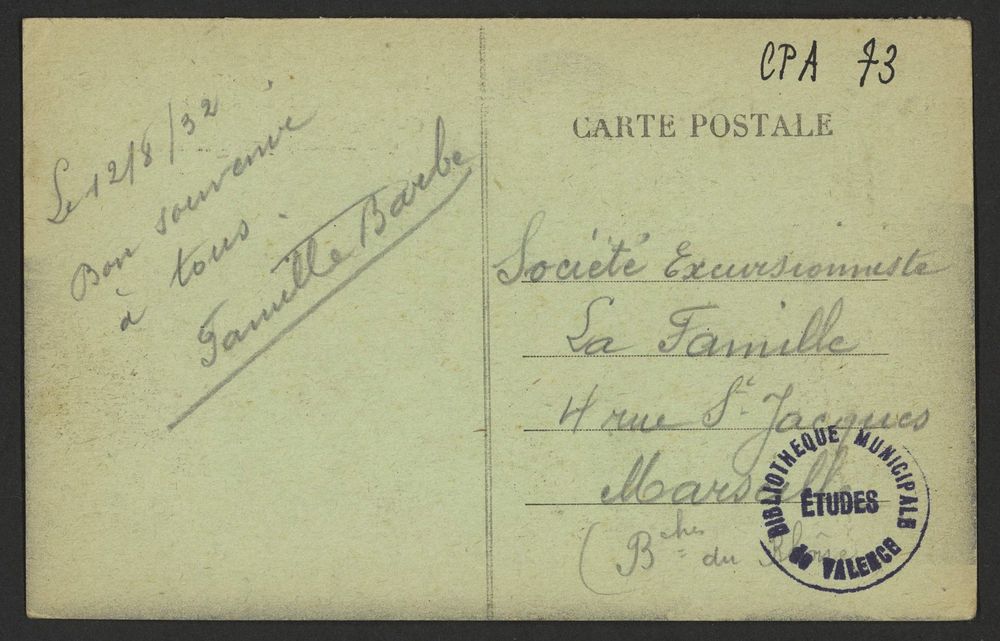 CPA 73
CARTE POSTALE
Le 12/8/32
Bon souvenir
à tous.
Famille Barbe
Société Excursionniste
La Famille
4 rue St Jacques
Marseille
(Bches du Rhône)
BIBLIOTHEQUE MUNICIPALE
ÉTUDES
de VALENCE